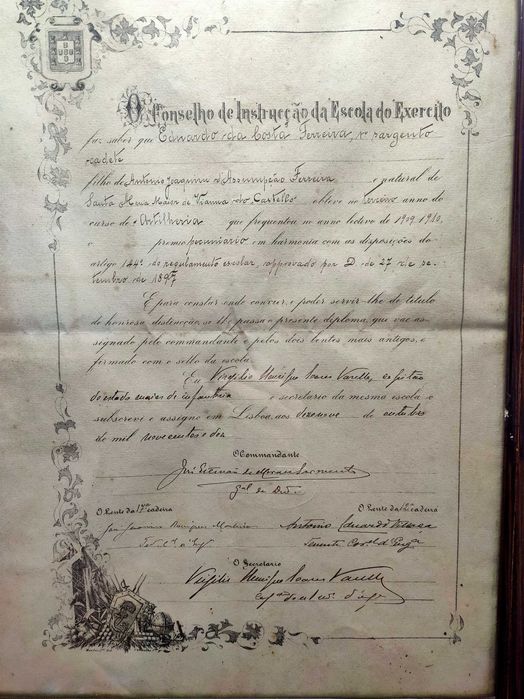 O Conselho de Instrucção da Escola do Exercito
faz saber que Eduardo da Costa Ferreira, 1º sargento
cadete
filho de Antonio Joaquim d'Assumpção Ferreira e natural de
Santa Maria Maior de Vianna do Castello obteve no terceiro anno do
curso de Artilheria que frequentou no anno lectivo de 1909-1910,
o premio pecuniario em harmonia com as disposições do
artigo 144º do regulamento escolar, approvado por D. de 27 de se-
tembro de 1897
E para constar onde convier, e poder servir-lhe de titulo
de honrosa distincção, se lhe passa o presente diploma, que vae as-
signado pelo commandante e pelos dois lentes mais antigos, e
firmado com o sello da escola.
Eu Virgilio Henrique Soares Varella, capitão
do estado maior de infanteria e secretario da mesma escola o
subscrevi e assigno em Lisboa, aos dezenove de outubro
de mil novecentos e dez
O Commandante
José Estevão de Moraes Sarmento
Gal de Divº
O Lente da cadeira
O Lente da cadeira
Antonio Eduardo Villaça
Tenente Corel d'Engª
O Secretario
Virgilio Henrique Soares Varella